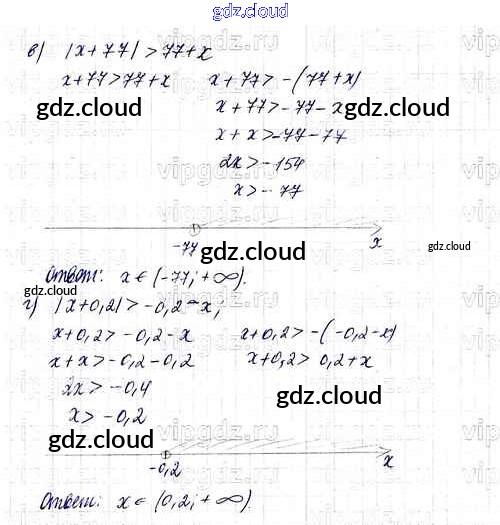 gdz.cloud
в) |x+77|>77+x
x+77>77+x x+77>-(77+x)
gdz.cloud x+77>-77-x gdz.cloud
x+x>-77-77
2x>-154
x>-77
-77 gdz.cloud x gdz.cloud
Ответ: x∈(-77; +∞).
г) |x+0,2|>-0,2-x,
x+0,2>-0,2-x x+0,2>-(-0,2-x)
x+x>-0,2-0,2 x+0,2>0,2+x
2x>-0,4
gdz.cloud
x>-0,2
gdz.cloud
-0,2 gdz.cloud x
Ответ: x∈(0,2; +∞).